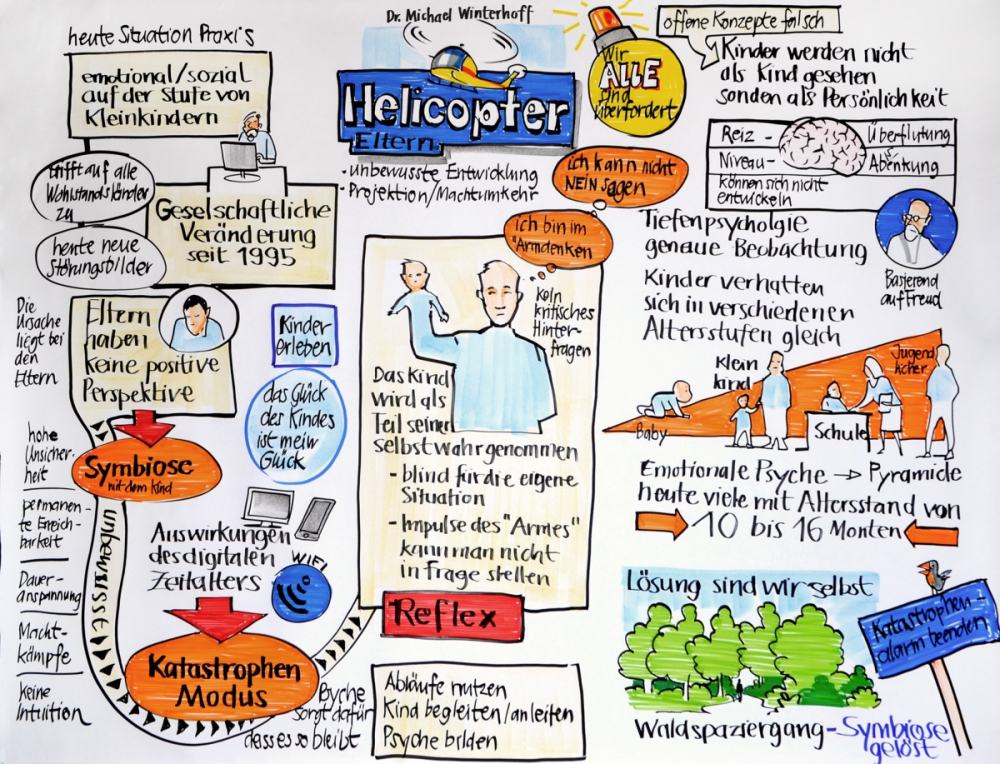 heute Situation Praxis
emotional/sozial
auf der Stufe von
Kleinkindern
trifft auf alle
Wohlstandsländer
zu
Geselschaftliche
Veränderung
seit 1995
heute neue
Störungsbilder
Die
Ursache
liegt bei
den
Eltern
Eltern
haben
keine positive
Perspektive
Kinder
erleben
das Glück
des Kindes
ist mein
Glück
hohe
Unsicher-
heit
permanen-
te Erreich-
barkeit
Dauer-
anspannung
Macht-
kämpfe
keine
Intuition
Symbiose
mit dem Kind
unbewusst
Auswirkungen
des digitalen
Zeitalters
WIFI
Katastrophen
Modus
Psyche
sorgt dafür
dass es so bleibt
Dr. Michael Winterhoff
Helicopter
Eltern
- unbewusste Entwicklung
- Projektion/Machtumkehr
Wir
ALLE
sind
überfordert
ich kann nicht
NEIN sagen
ich bin im
"Armdenken
kein
kritisches
Hinter-
fragen
Das Kind
wird als
Teil seiner
selbst wahrgenommen
- blind für die eigene
Situation
- Impulse des "Armes"
kann man nicht
in Frage stellen
Reflex
Abläufe nutzen
Kind begleiten/anleiten
Psyche bilden
offene Konzepte falsch
Kinder werden nicht
als Kind gesehen
sondern als Persönlichkeit
Reiz - Überflutung
Niveau - Absenkung
können sich nicht
entwickeln
Tiefenpsycholgie
genaue Beobachtung
Basierend
auf Freud
Kinder verhalten
sich in verschiedenen
Altersstufen gleich
Baby
Klein
kind
Schule
Jugend
licher
Emotionale Psyche → Pyramide
heute viele mit Altersstand von
10 bis 16 Monten
Lösung sind wir selbst
Katastrophen-
alarm beenden
Waldspaziergang - Symbiose
gelöst